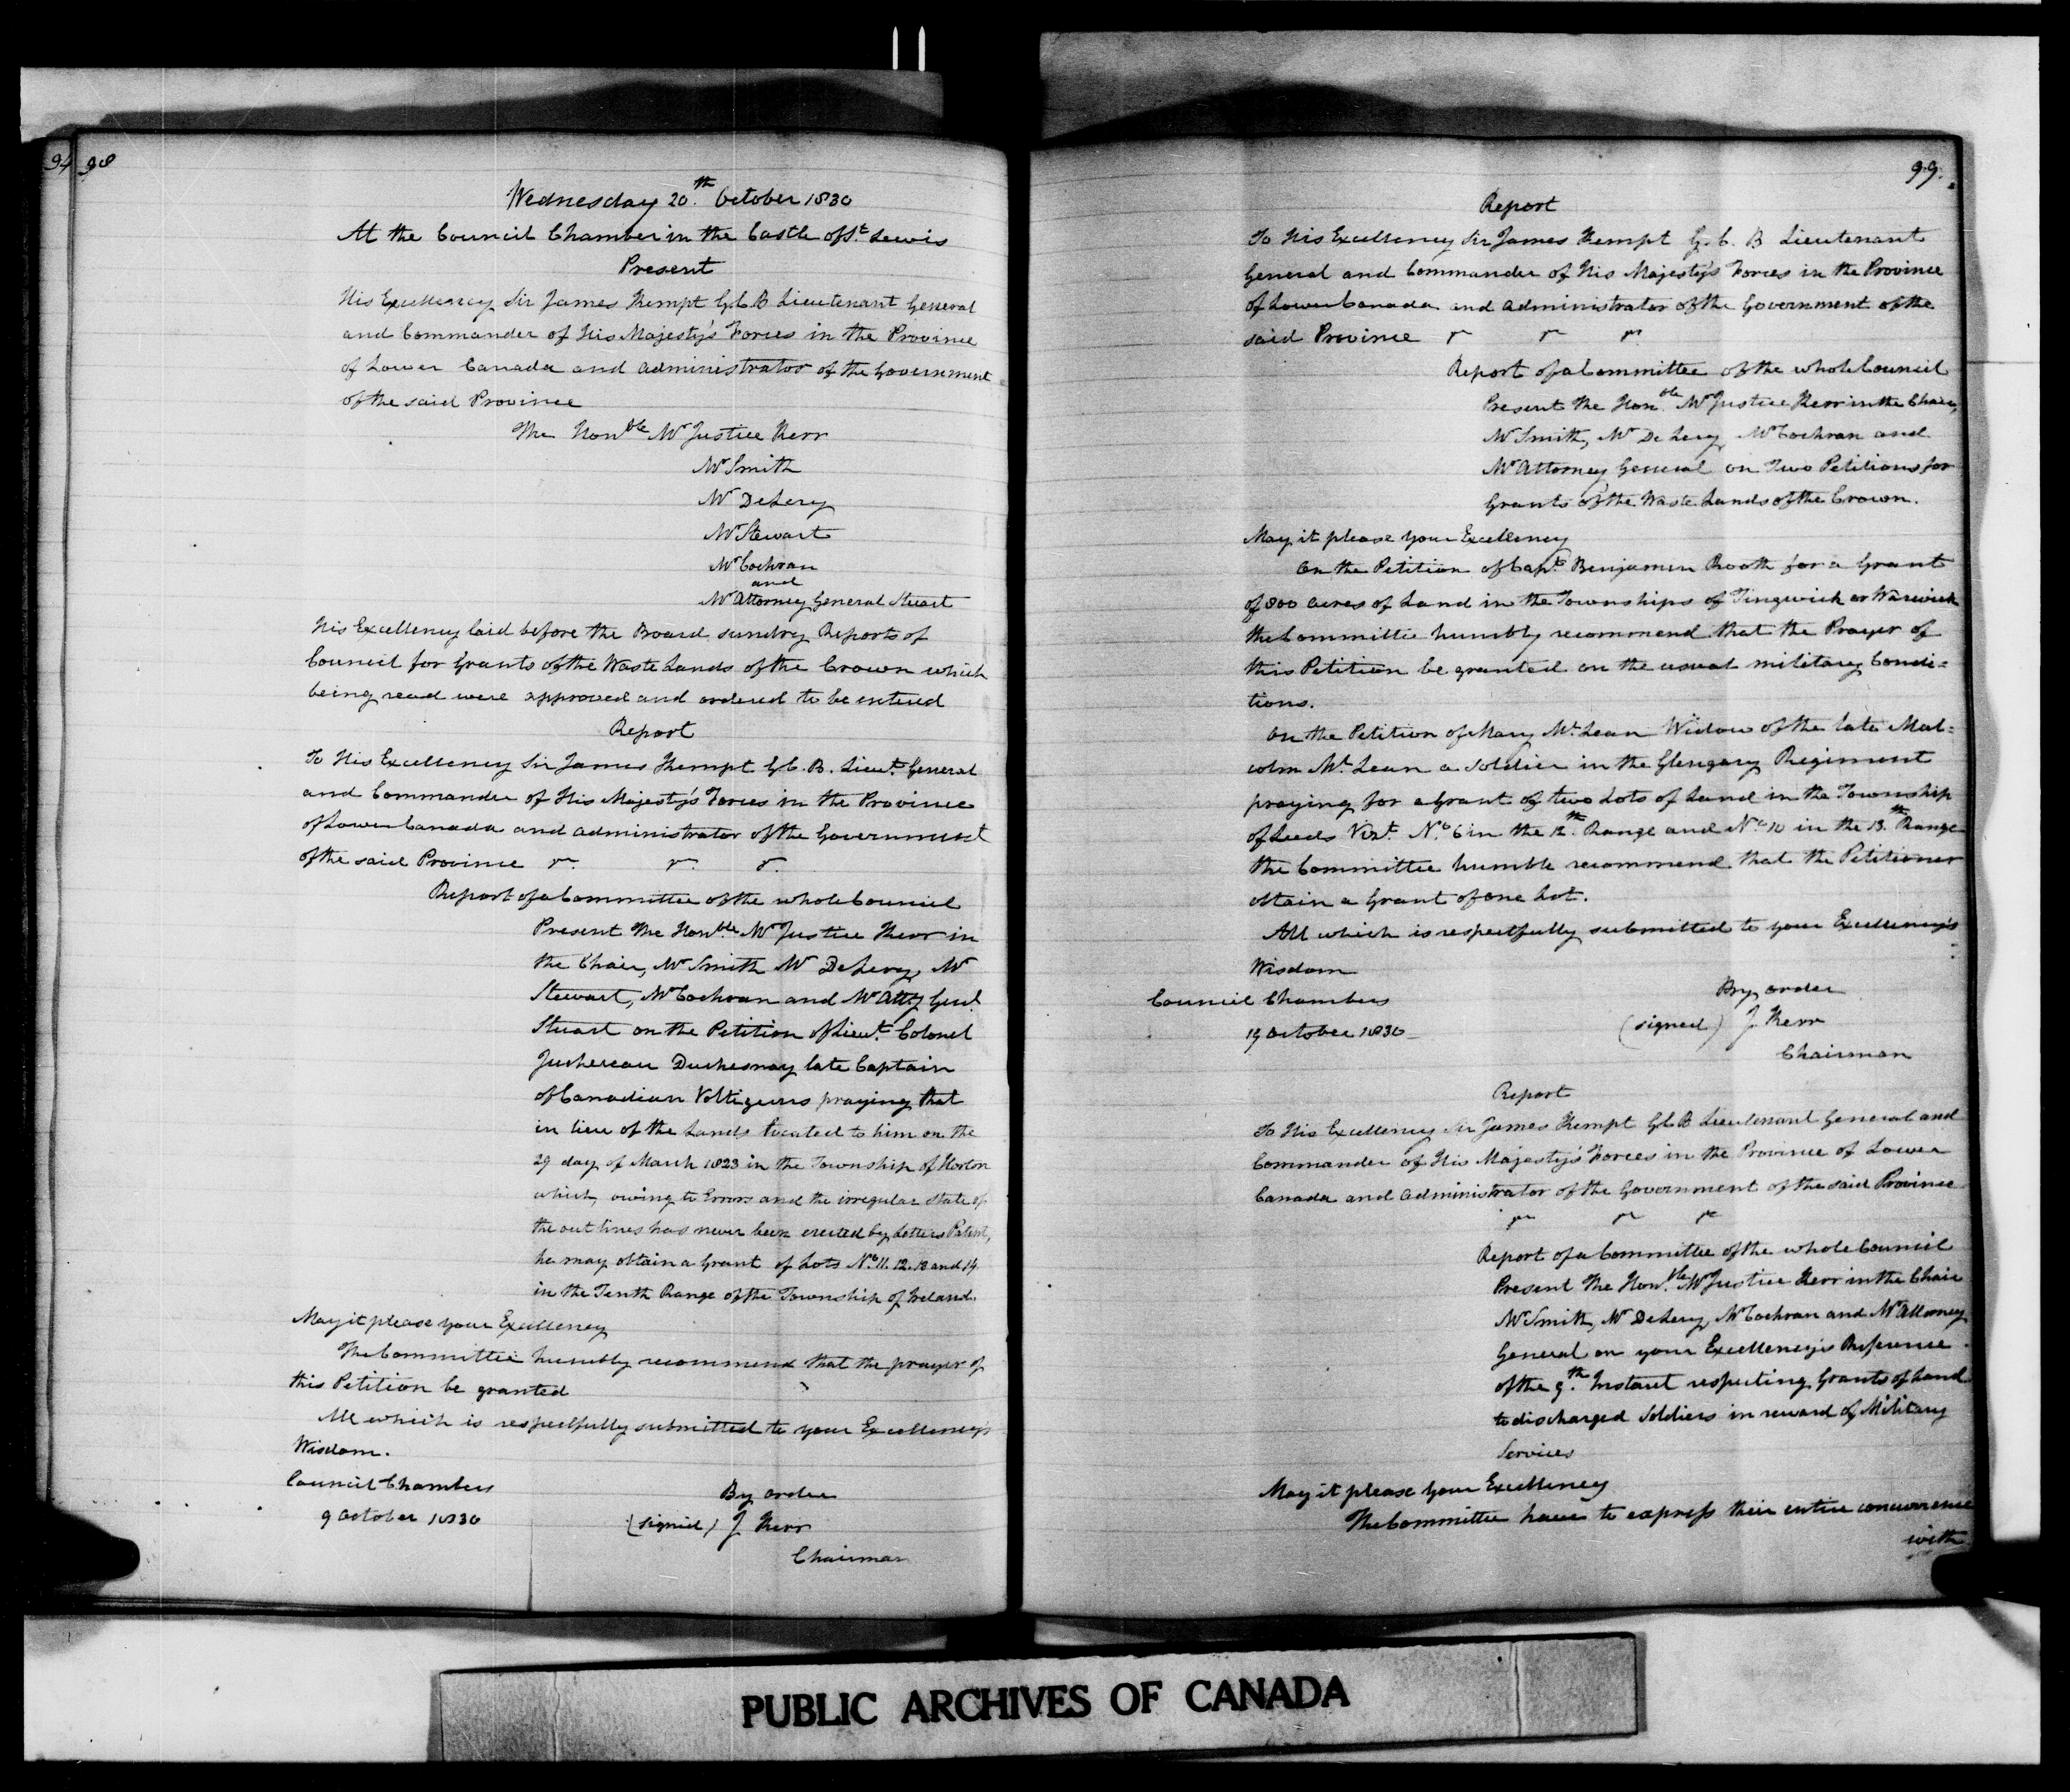 94 98
Wednesday 20th October 1830
At the Council Chamber in the Castle of St Lewis
Present
His Excellency Sir James Kempt G.C.B Lieutenant General
and Commander of His Majesty's Forces in the Province
of Lower Canada and Administrator of the Government
of the said Province
The Honble Mr Justice Kerr
Mr Smith
Mr DeLery
Mr Stewart
Mr Cochran
and
Mr Attorney General Stuart
His Excellency laid before the Board sundry Reports of
Council for Grants of the Waste Lands of the Crown which
being read were approved and ordered to be entered
Report
To His Excellency Sir James Kempt G.C.B. Lieut. General
and Commander of His Majesty's Forces in the Province
of Lower Canada and Administrator of the Government
of the said Province
Report of a Committee of the whole Council
Present The Honble Mr Justice Kerr in
the Chair, Mr Smith Mr DeLery, Mr
Stewart, Mr Cochran and Mr Atty Genl
Stuart on the Petition of Lieut. Colonel
Juchereau Duchesnay late Captain
of Canadian Voltigeurs praying that
in lieu of the Lands located to him on the
29 day of March 1823 in the Township of Horton
which, owing to Errors and the irregular state of
the out lines has never been erected by Letters Patent,
he may obtain a Grant of Lots No 11. 12. 13 and 14
in the Tenth Range of the Township of Ireland.
May it please your Excellency
The Committee humbly recommend that the prayer of
this Petition be granted
All which is respectfully submitted to your Excellency's
Wisdom.
Council Chambers
By order
9 October 1830
(signed) J Kerr
Chairman
99.
Report
To His Excellency Sir James Kempt G.C.B Lieutenant
General and Commander of His Majesty's Forces in the Province
of Lower Canada and Administrator of the Government of the
said Province
Report of a Committee of the whole Council
Present The Honble Mr Justice Kerr in the Chair,
Mr Smith, Mr De Lery Mr Cochran and
Mr Attorney General on Two Petitions for
Grants of the Waste Lands of the Crown.
May it please your Excellency
On the Petition of Capt. Benjamin Rooth for a Grant
of 800 acres of Land in the Townships of Tingwick or Warwick
the Committee humbly recommend that the Prayer of
this Petition be granted on the usual military Condi=
tions.
On the Petition of Mary Mc Lean Widow of the late Mal=
colm Mc Lean a Soldier in the Glengary Regiment
praying for a Grant of two Lots of Land in the Township
of Leeds Vizt. No 6 in the 12th Range and No 10 in the 13th Range
the Committee humble recommend that the Petitioner
obtain a Grant of one Lot.
All which is respectfully submitted to your Excellency's
Wisdom
Council Chambers
By order
19 October 1830
(signed) J Kerr
Chairman
Report
To His Excellency Sir James Kempt G.C.B Lieutenant General and
Commander of His Majesty's Forces in the Province of Lower
Canada and Administrator of the Government of the said Province
Report of a Committee of the whole Council
Present The Honble Mr Justice Kerr in the Chair
Mr Smith, Mr DeLery, Mr Cochran and Mr Attorney
General on your Excellency's Reference
of the 9th Instant respecting Grants of Land
to discharged Soldiers in reward of Military
Services
May it please your Excellency
The Committee have to express their entire concurrence
with
PUBLIC ARCHIVES OF CANADA